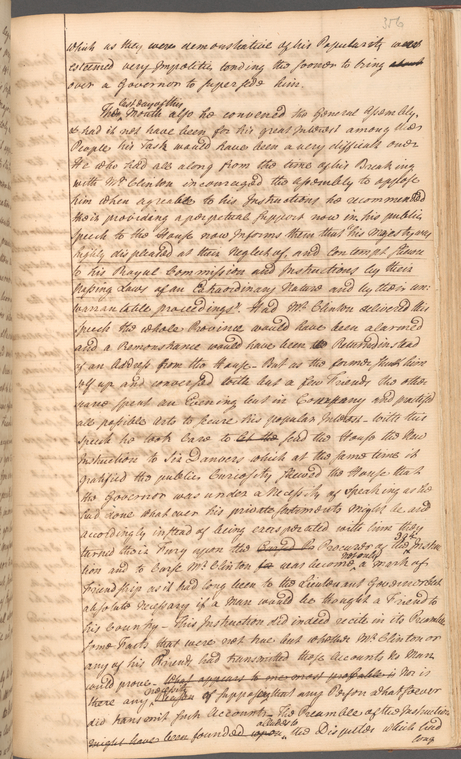 356
which as they were demonstrative of his Popularity were
esteemed very Impolitic tending the sooner to bring about
over a Governor to supersede him.
last day of this
This Month also he convened the General Assembly,
& had it not have been for his great Interest among the
People his Task would have been a very difficult one.
He who had all along from the time of his Breaking
with Mr. Clinton incouraged the Assembly to oppose
him when agreeable to his Instructions he recommended
their providing a perpetual support now in his public
Speech to the House now Informs them that his Majesty was
highly displeased at their Neglect of, and Contempt shewn
to his Royal Commission and Instructions by their
passing Laws of an Extraordinary Nature and by their un-
warrantable proceedings. Had Mr. Clinton delivered this
Speech the whole Province would have been alarmed
and a Remonstrance would have been Returned instead
of an Address from the House - But as the former shut him
self up and conversed with but a few Friends the other
never spent an Evening but in Company and practised
all possible Arts to secure his popular Interest - With this
Speech he took Care to let the send the House the New
Instruction to Sir Danvers which at the same time it
gratified the publics Curiosity shewed the House that
the Governor was under a Necessity of speaking as he
had done whatever his private sentiments might be, and
accordingly instead of being exasperated with him they
turned their Fury upon the Procurer of the 39th Instruc
tion and to Curse Mr. Clinton was become not only a mark of
Friendship as it had long been to the Lieutenant Governor but
absolute Necessary if a Man would be thought a Friend to
his Country - This Instruction did indeed recite in its Preamble
some Facts that were not true but whether Mr. Clinton or
any of his Friends had transmitted those Accounts no Man
could prove - What appears to me most probable is Nor is
necessity
there any reason of supposing that any Person whatsoever
did transmit such Accounts - The Preamble of the Instruction
alludes to
might have been founded upon the Disputes which had
long